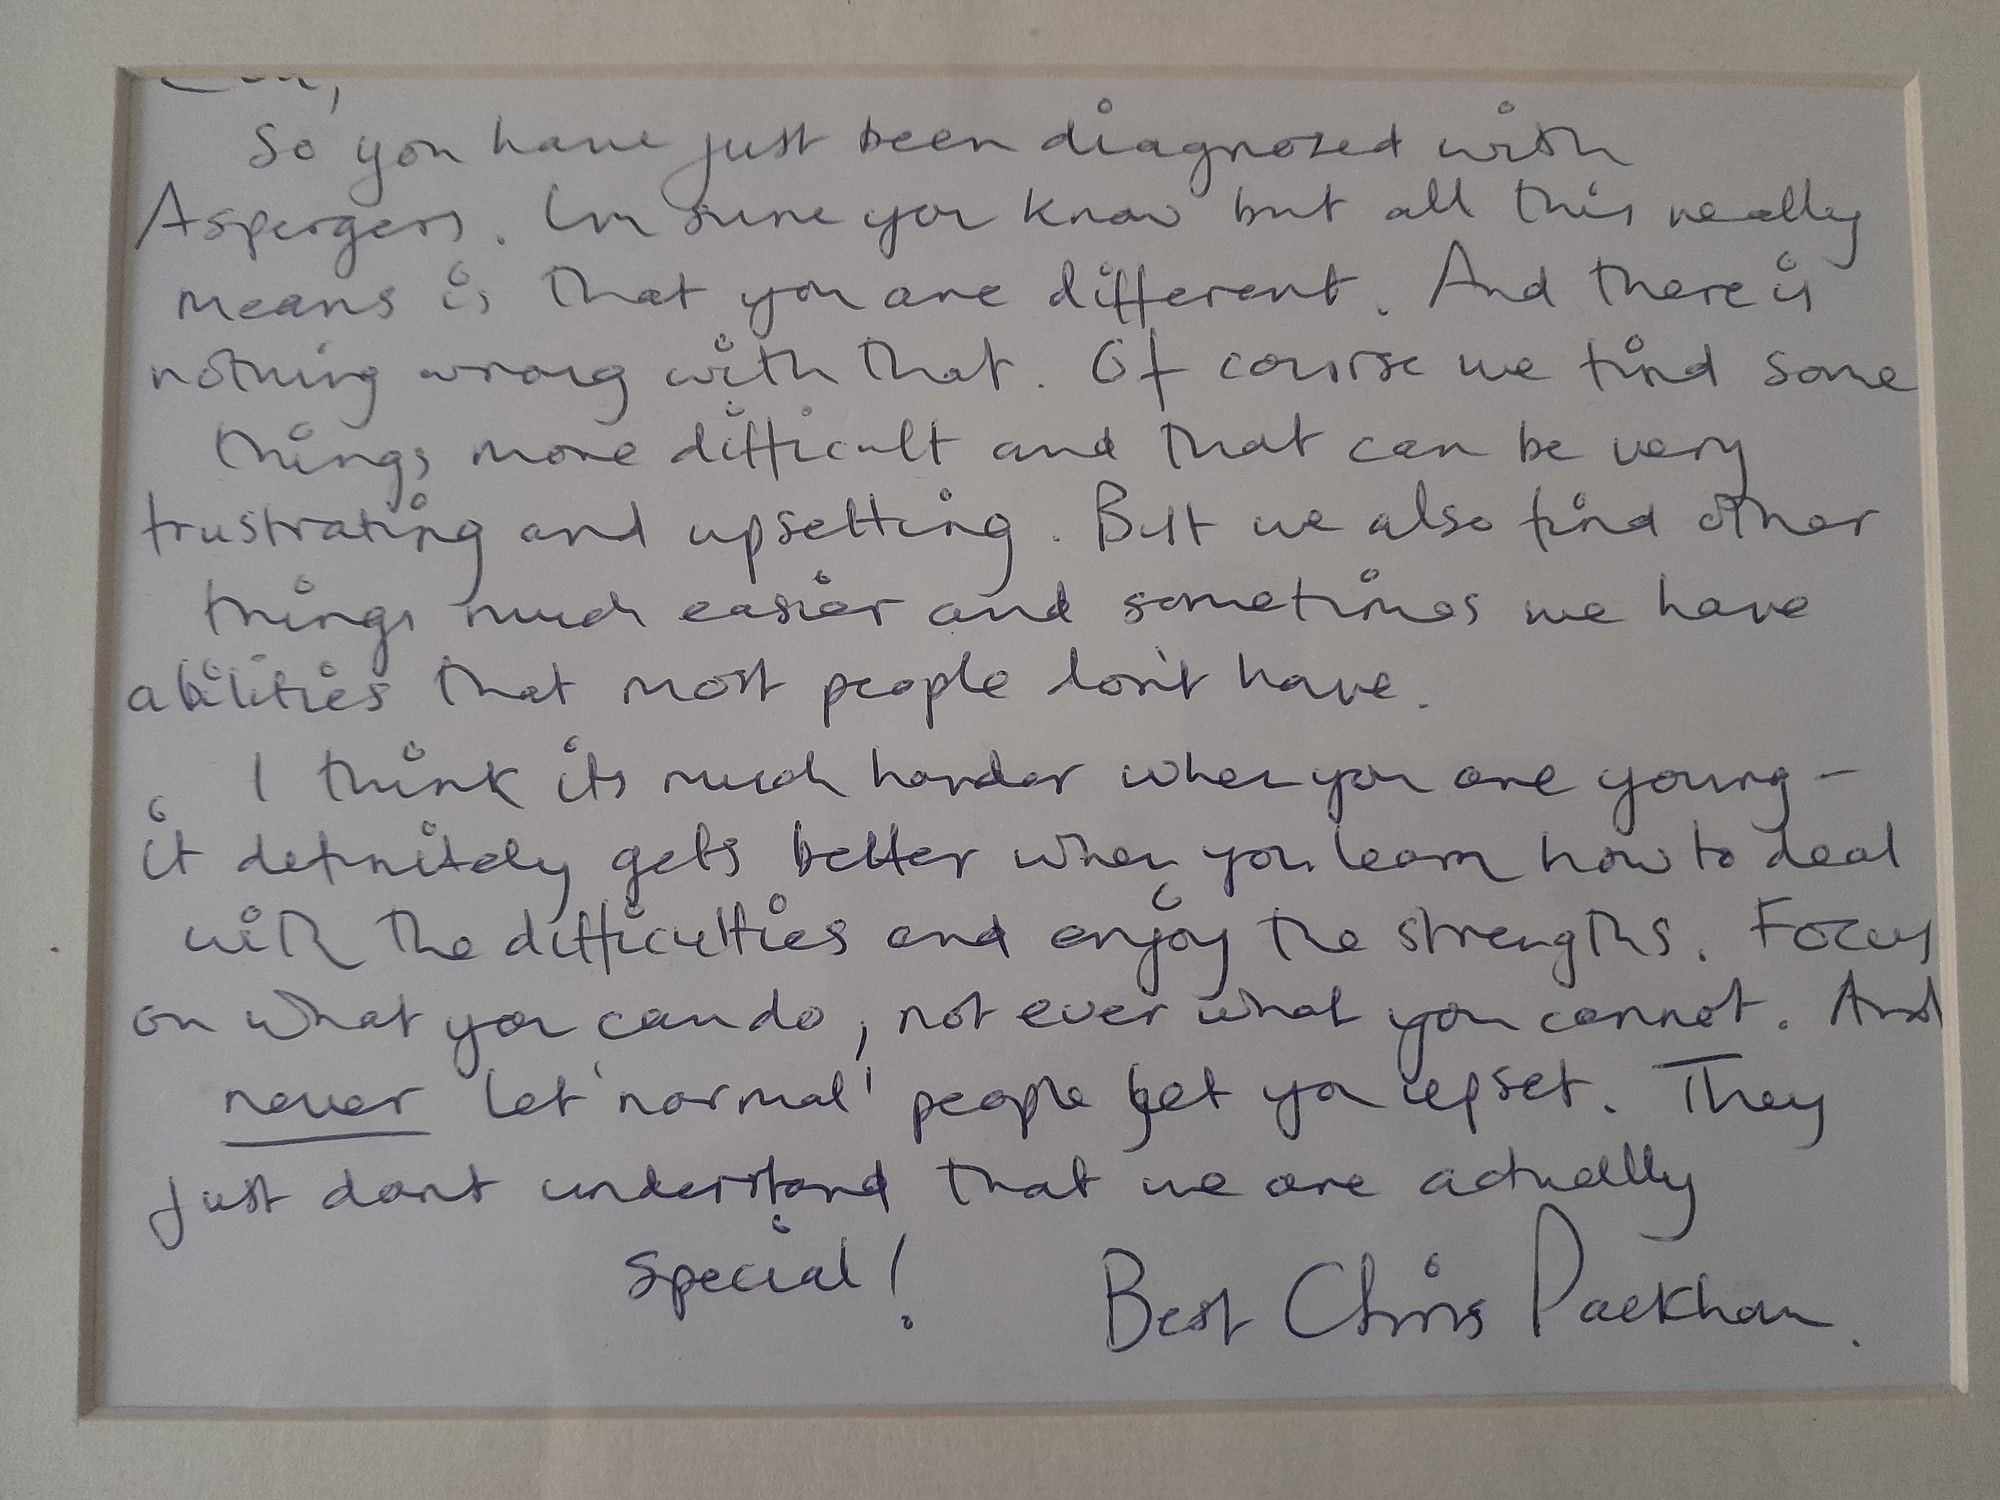 So you have just been diagnosed with
Aspergers. Im sure you know but all this really
means is that you are different. And there is
nothing wrong with that. Of course we find some
things more difficult and that can be very
frustrating and upsetting. But we also find other
things much easier and sometimes we have
abilities that most people don't have.
I think its much harder when you are young -
it definitely gets better when you learn how to deal
with the difficulties and enjoy the strengths. Focus
on what you can do, not ever what you cannot. And
never let 'normal' people get you upset. They
just dont understand that we are actually
special!
Best Chris Packham.